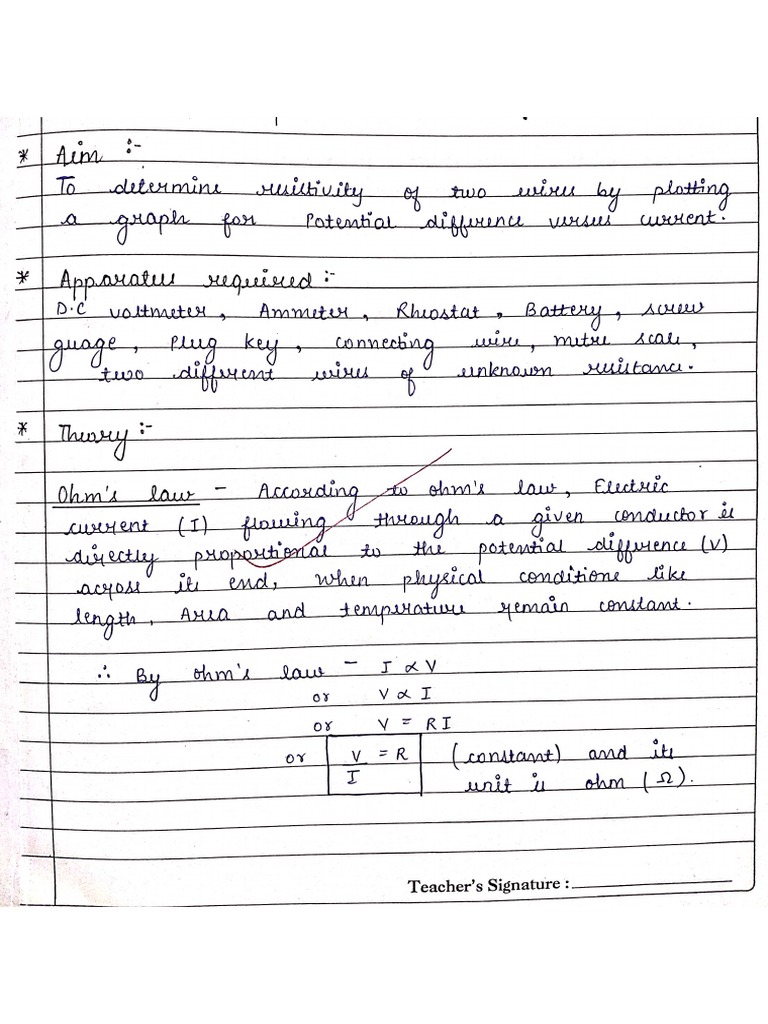 * Aim :-
To determine resistivity of two wires by plotting
a graph for Potential difference versus current.
* Apparatus required :-
D.C voltmeter, Ammeter, Rheostat, Battery, screw
guage, Plug key, connecting wire, metre scale,
two different wires of unknown resistance.
* Theory :-
Ohm's law - According to ohm's law, Electric
current (I) flowing through a given conductor is
directly proportional to the potential difference (V)
across its end, when physical conditions like
length, Area and temperature remain constant.
∴ By ohm's law - I ∝ V
or V ∝ I
or V = RI
or V/I = R (constant) and its
unit is ohm (Ω).
Teacher's Signature :